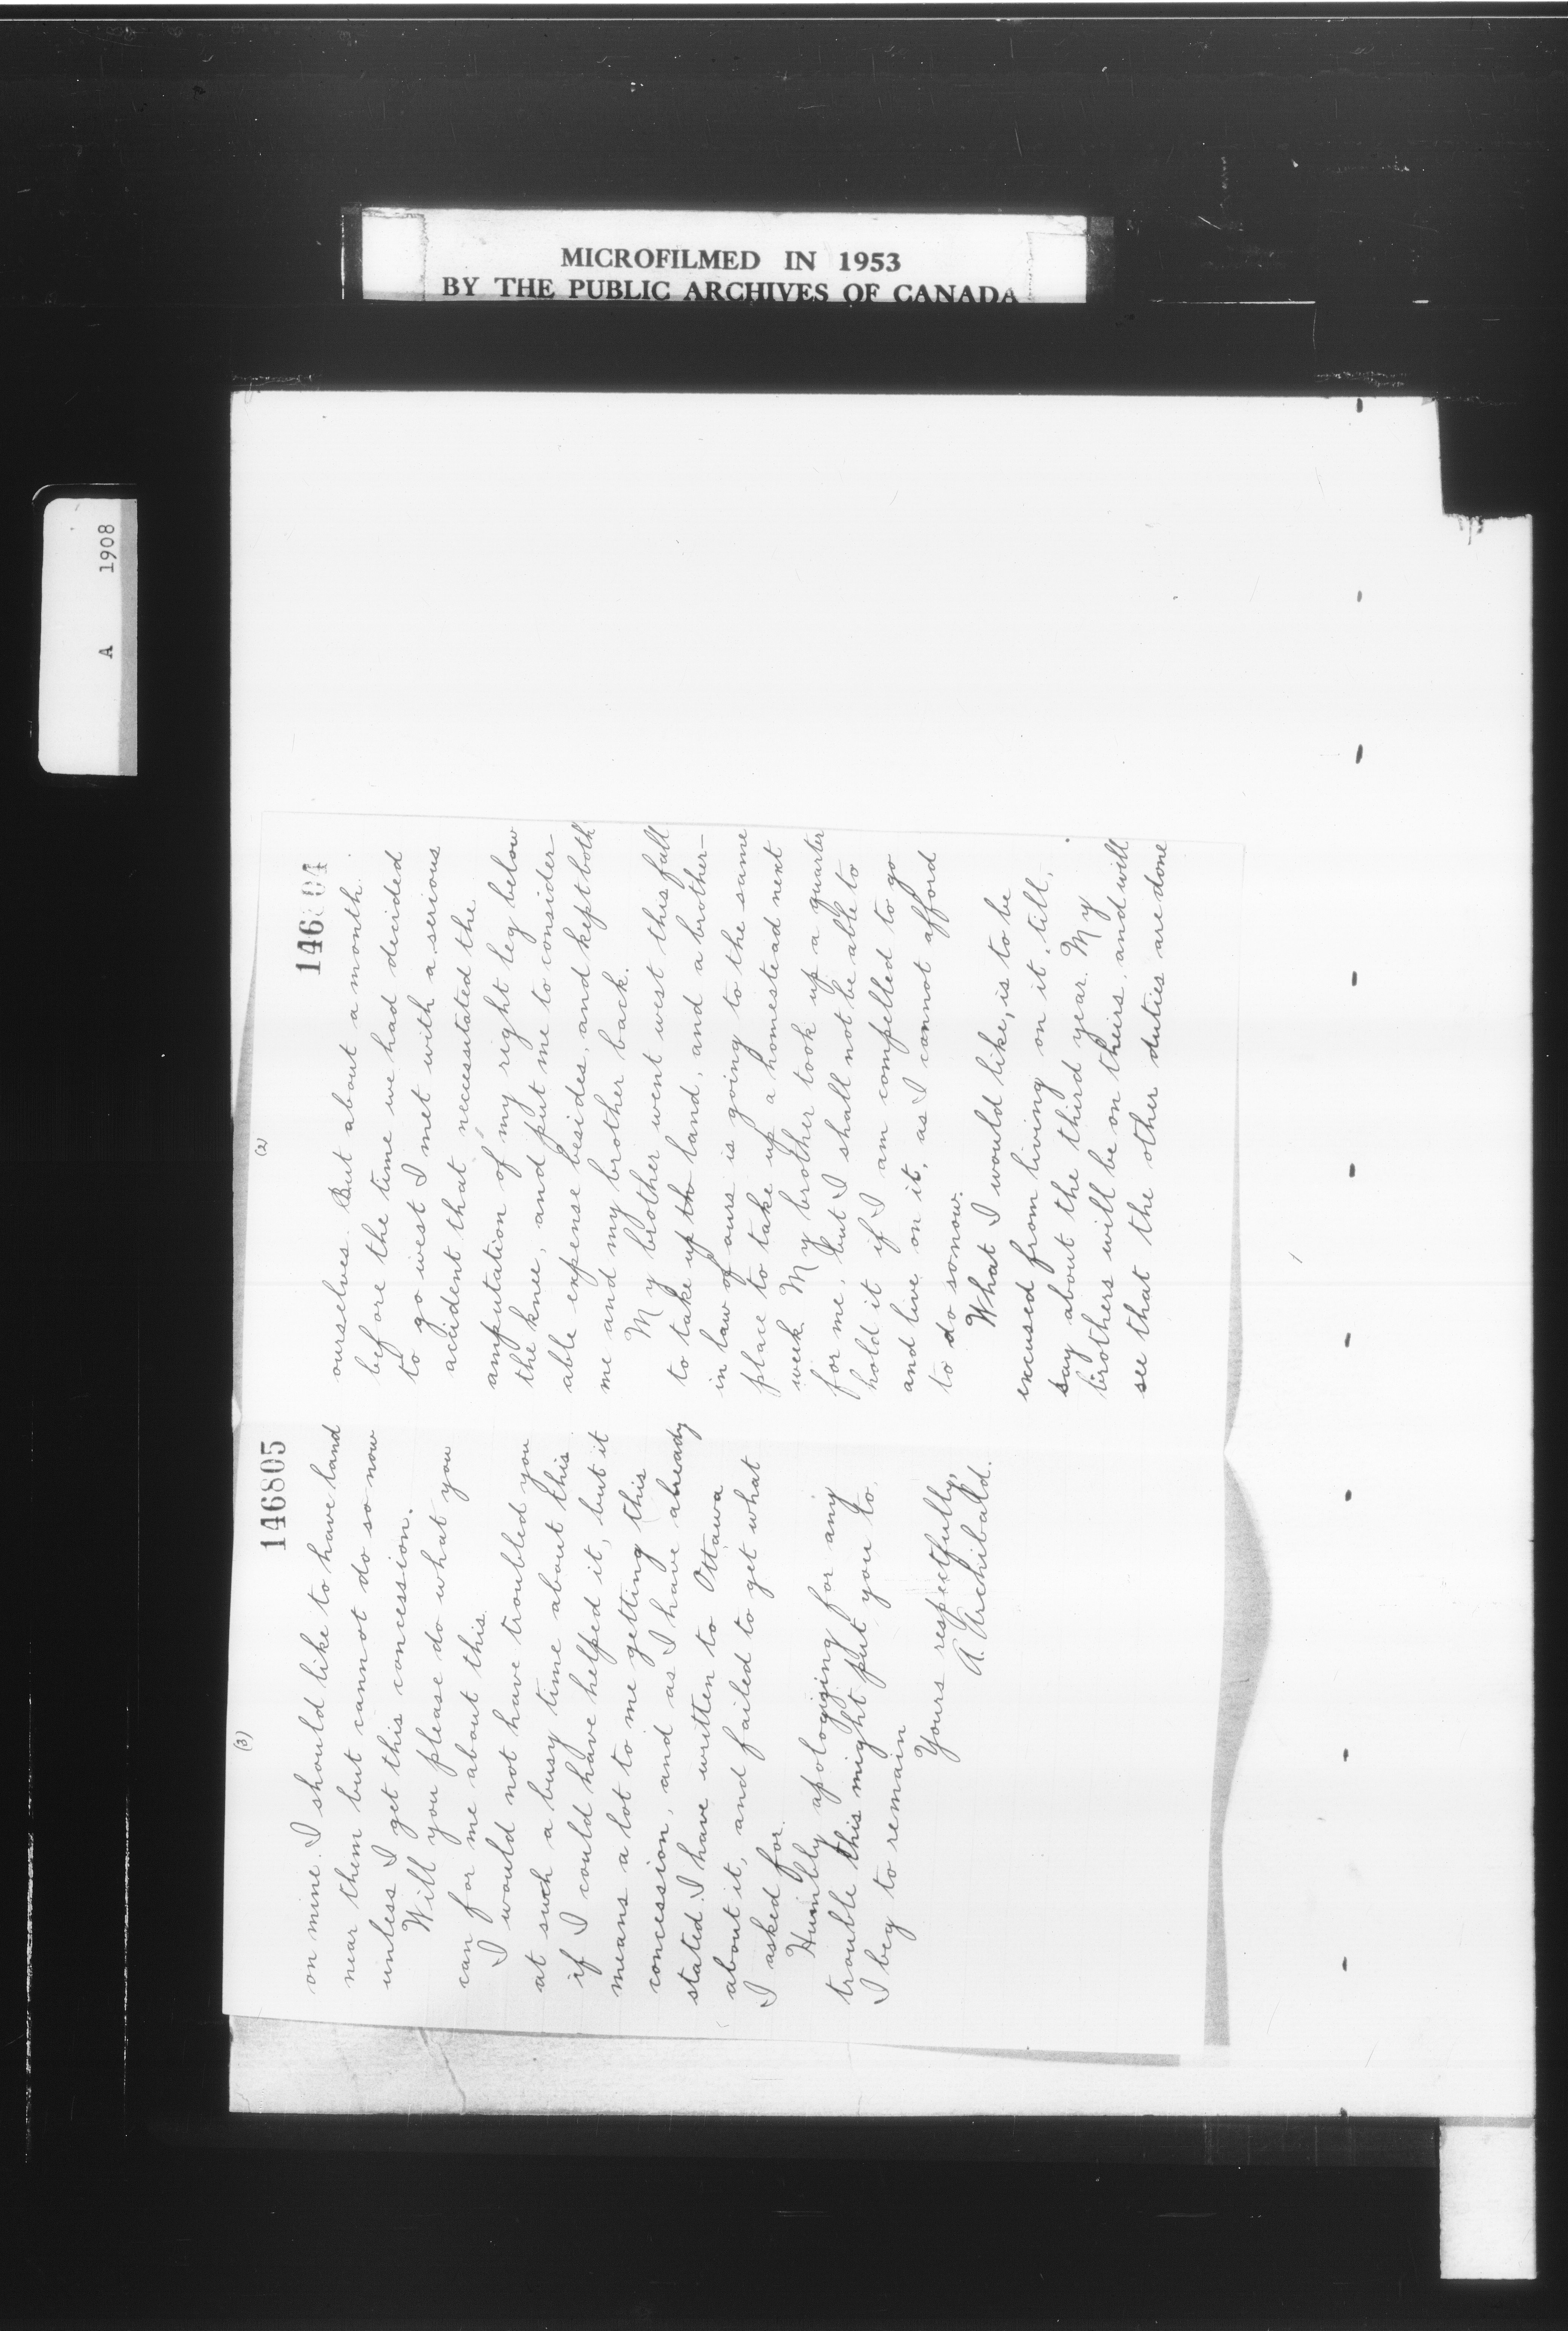 MICROFILMED IN 1953
BY THE PUBLIC ARCHIVES OF CANADA
A 1908
(2)
146804
ourselves. But about a month
before the time we had decided
to go west I met with a serious
accident that neccessitated the
amputation of my right leg below
the knee, and put me to consider-
able expense besides, and kept both
me and my brother back.
My brother went west this fall
to take up th land, and a brother-
in law of ours is going to the same
place to take up a homestead next
week. My brother took up a quarter
for me, but I shall not be able to
hold it if I am compelled to go
and live on it, as I cannot afford
to do so now.
What I would like, is to be
excused from living on it, till,
say about the third year. My
brothers will be on theirs, and will
see that the other duties are done
(3)
146805
on mine. I should like to have land
near them but cannot do so now
unless I get this concession.
Will you please do what you
can for me about this.
I would not have troubled you
at such a busy time about this
if I could have helped it, but it
means a lot to me getting this
concession, and as I have already
stated I have written to Ottawa
about it, and failed to get what
I asked for.
Humbly apologizing for any
trouble this might put you to
I beg to remain
Yours respectfully,
A. Archibald.